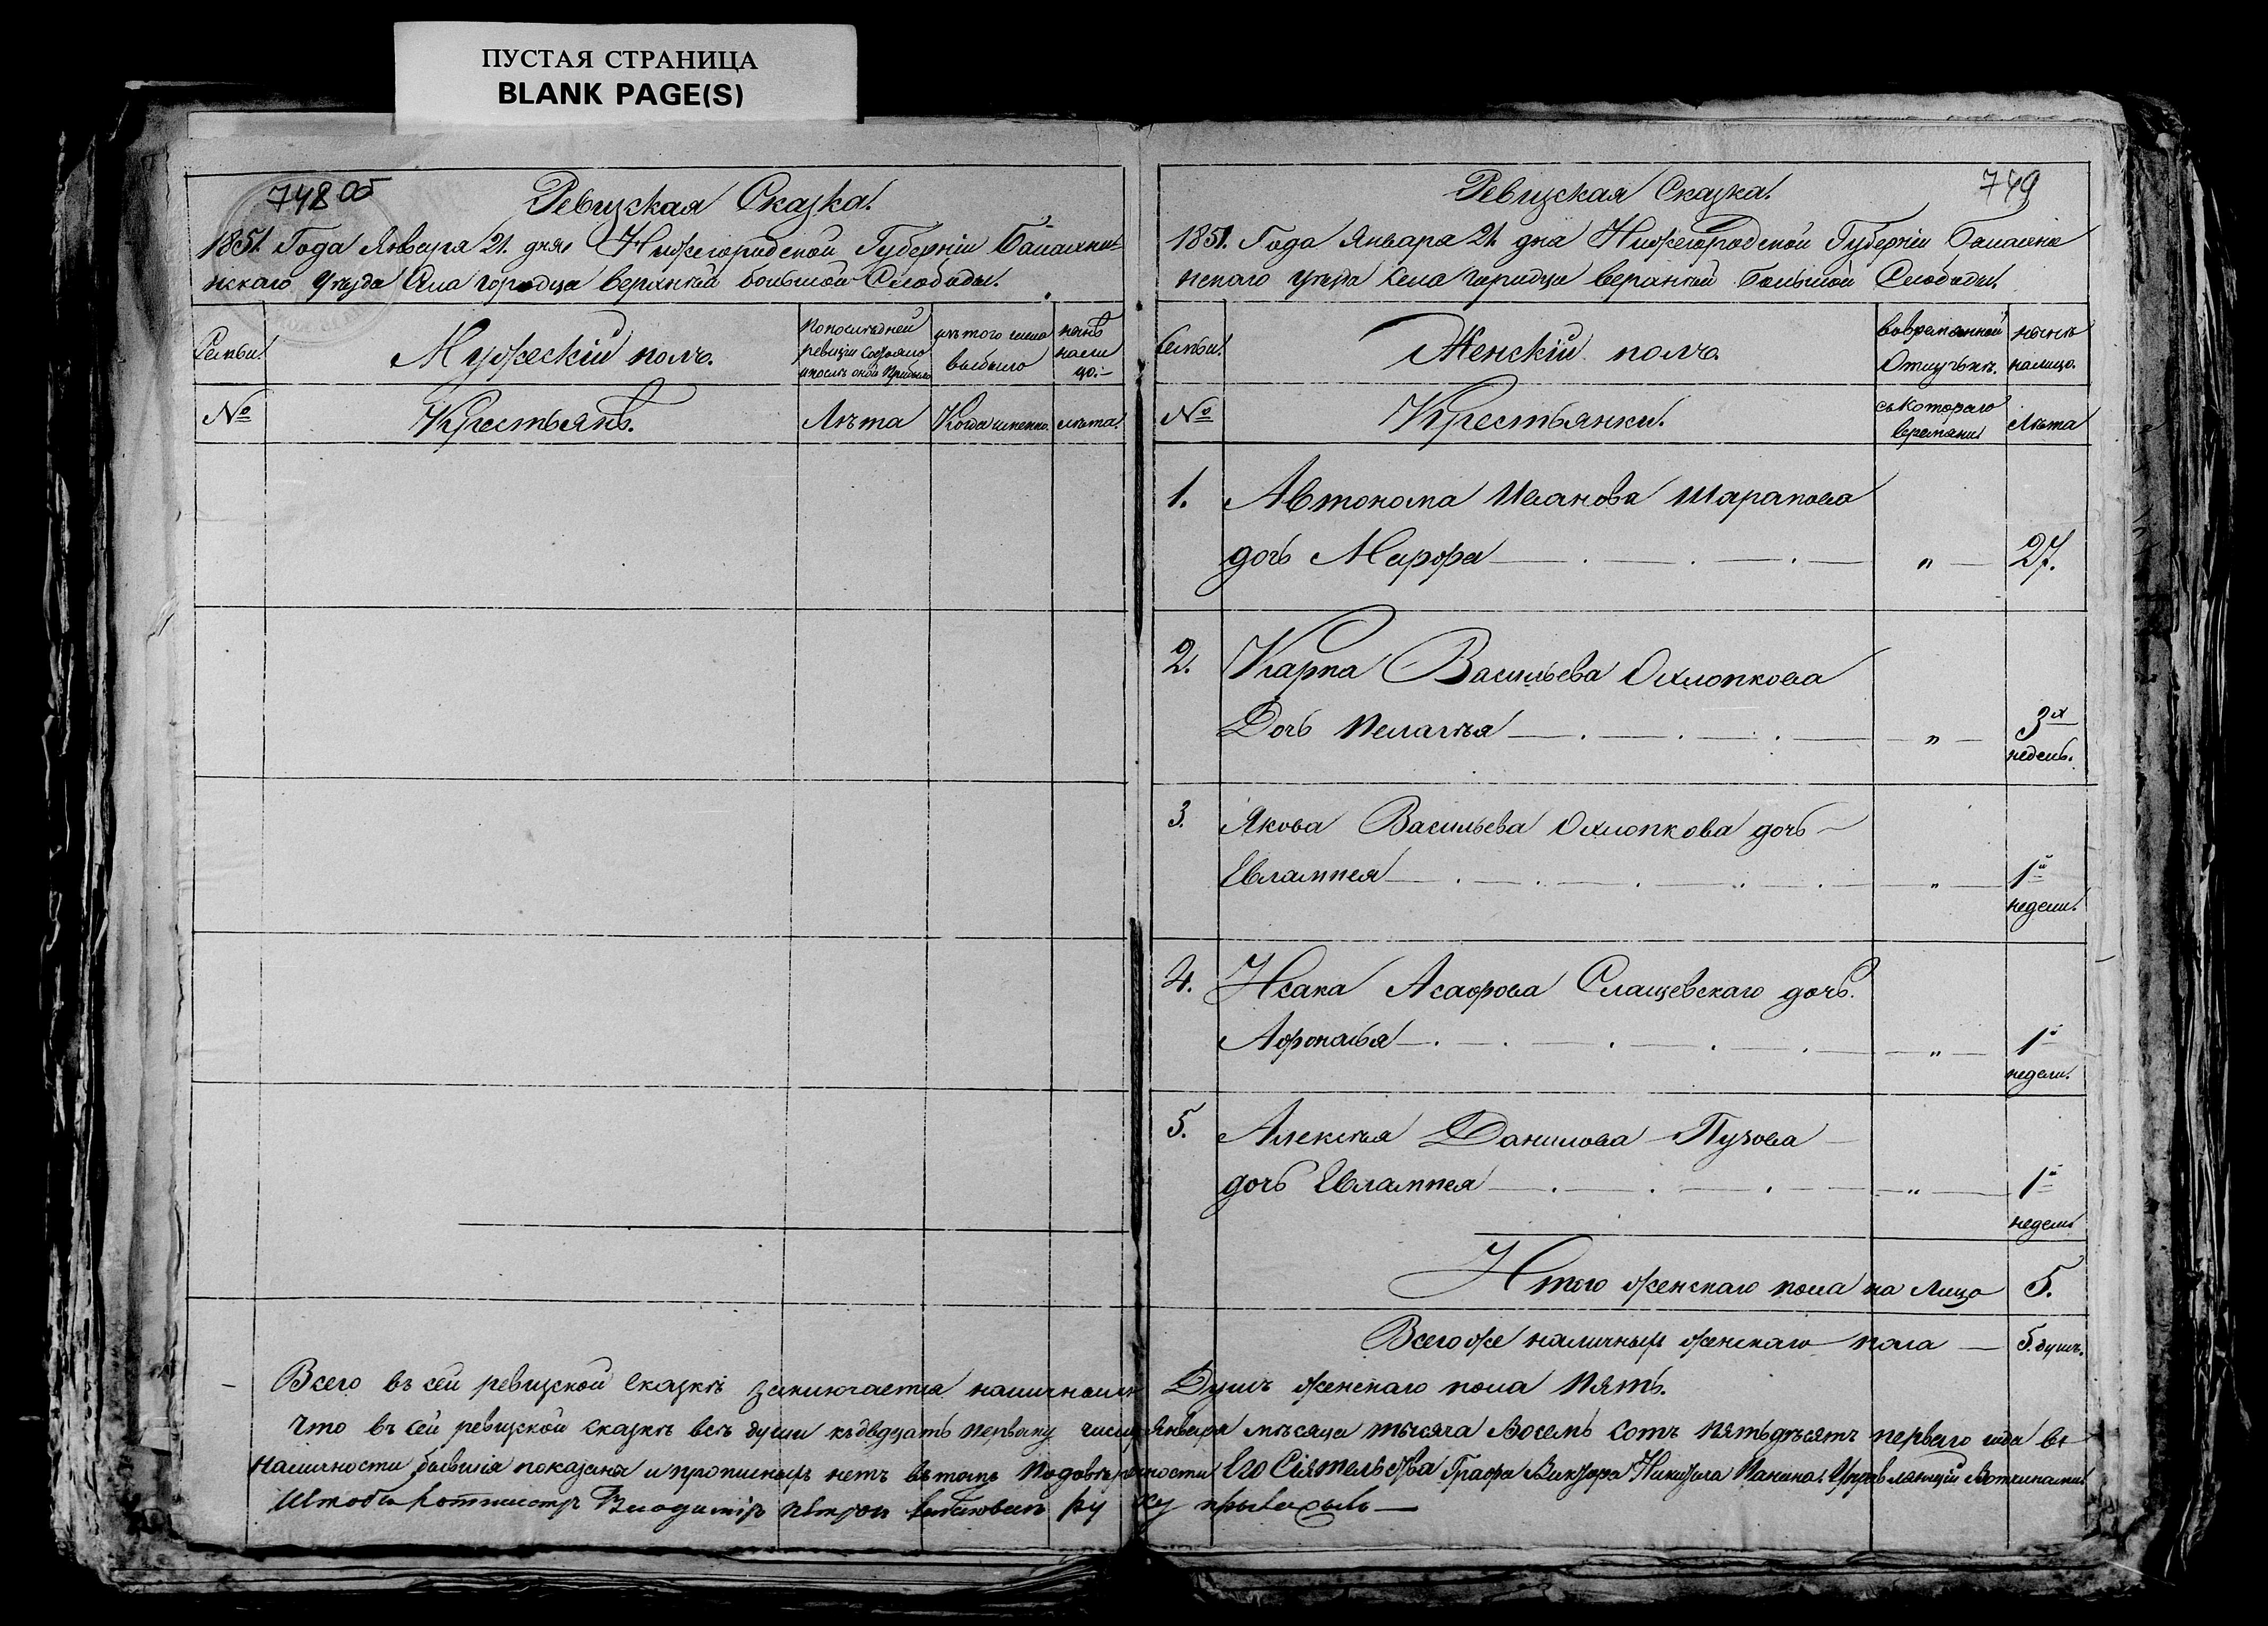 ПУСТАЯ СТРАНИЦА
BLANK PAGE(S)
748 об
Ревизская Сказка.
1851. Года Января 21. дня Нижегородской Губерніи Балахни
нскаго Уѣзда Села городца верхнѣй большой Слободы.
Семьи
Мужескій полъ.
По послѣдней ревизіи состояло и послѣ оной прибыло
изъ того числа выбыло
нынѣ на ли цо.
№
Крестьянъ.
Лѣта
Когда именно.
лѣта
749
Ревизская Сказка.
1851. Года Января 21. дня Нижегородской Губерніи Балахни
нскаго уѣзда села городца верхнѣй большой Слободы.
Семьи.
Женскій полъ.
во временной Отлучкѣ.
нынѣ налицо.
№
Крестьянки.
съ котораго времяни
Лѣта
1. Автонома Иванова Шарапова
дочь Марфа „ 27.
2. Карпа Васильева Охлопкова
Дочь Пелагѣя „ 3х
недель.
3. Якова Васильева Охлопкова дочь
Евлампея „ 1й
недели.
4. Исака Асафова Слащевскаго дочь.
Афонасья „ 1й
недели.
5. Алексѣя Данилова Пузова
дочь Евлампея „ 1й
недели
Итого женскаго пола на лицо 5.
Всего же наличныхъ женскаго пола 5. душъ.
Всего въ сей ревизской сказкѣ заключается наличныхъ Душъ женскаго пола пять.
Что въ сей ревизской сказкѣ всѣ души къ двадцать первому числу Января мѣсяца тысяча Восемь сотъ пятьдѣсятъ перваго года въ
наличности бывшія показаны и прописныхъ нетъ въ томъ По довѣренности Его Сіятельства Графа Виктора Никитича Панина Управляющій Вотчинами
Штабъ ротмистръ Владиміръ Петровъ руку приложилъ